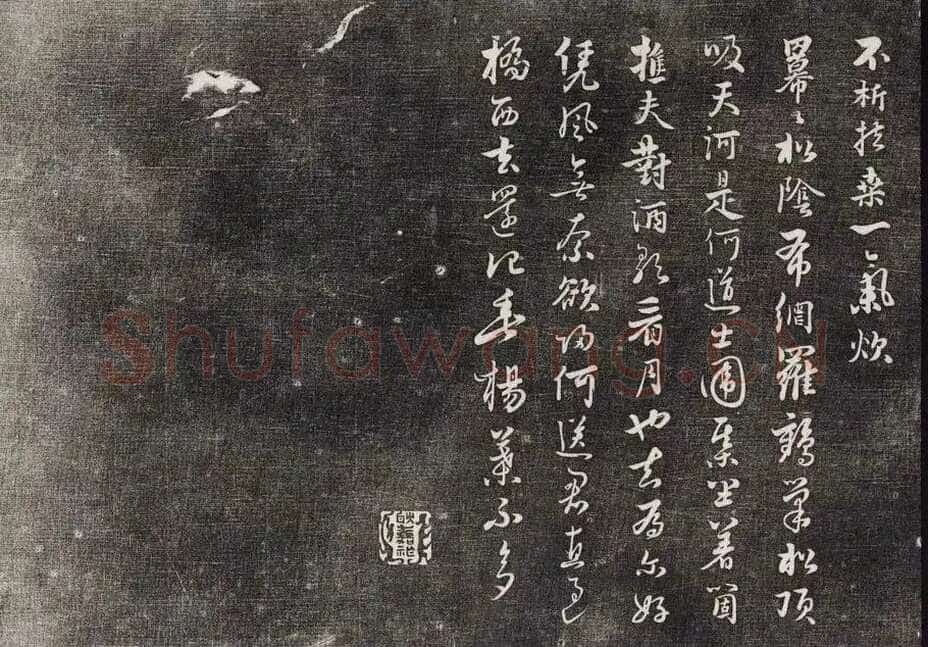 不析扶桑一氣炊
冪〻松陰布網羅鶴巢松頂
吸天河是何道士圍棊坐著箇
樵夫對酒歌看月也去為尔好
凭風無奈欲歸何送君直過
橋西去還記垂楊葉不多
Shufawang.cn